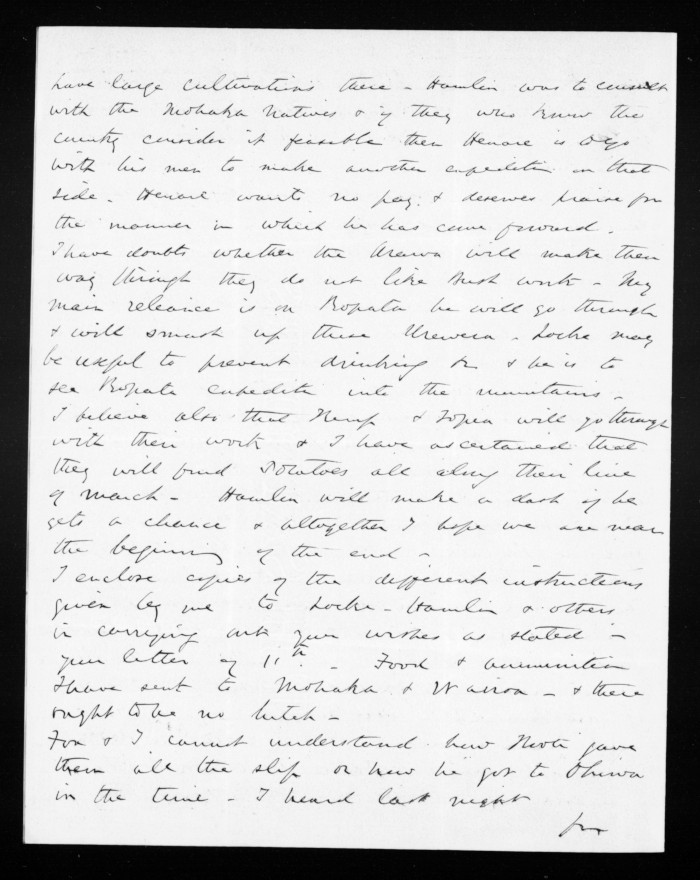 have large cultivations there - Hamlin was to consult
with the Mohaka Natives & if they who knew the
country consider it feasable then Henare is to go
with his men to make another expedition on that
side. Henare wants no pay & deserves praise for
the manner in which he has come forward.
I have doubts whether the Arawa will make their
way through they do not like Bush work - My
main releance is on Ropata he will go through
& will smash up these Urewera - Locke may
be useful to prevent drinking & he is to
see Ropata expedite into the mountains -
I believe also that Kemp & Topia will go through
with their work & I have ascertained that
they will find Potatoes all along their line
of march - Hamlin will make a dash if he
gets a chance & altogether I hope we are near
the beginning of the end -
I enclose copies of the different instructions
given by me to Locke - Hamlin & others
in carrying out your wishes as stated in
your letter of 11th. - Food & ammunition
I have sent to Mohaka & Wairoa - & there
ought to be no hitch -
Fox & I cannot understand how Kooti gave
them all the slip or how he got to Ohiwa
in the time - I heard last night
from